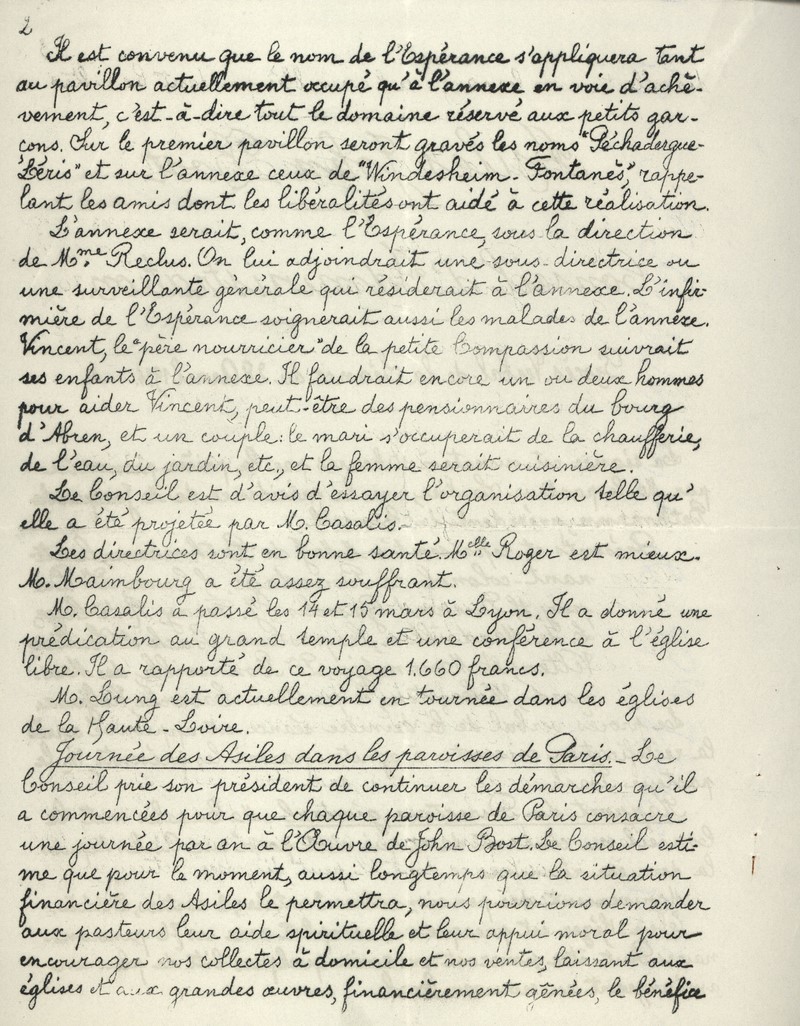 2
Il est convenu que le nom de l'Espérance s'appliquera tant
au pavillon actuellement occupé qu'à l'annexe en voie d'achè-
vement, c'est-à-dire tout le domaine réservé aux petits gar-
çons. Sur le premier pavillon seront gravés les noms "Péchadergue-
Léris" et sur l'annexe ceux de "Windesheim-Fontanès", rappe-
lant les amis dont les libéralités ont aidé à cette réalisation.
L'annexe serait, comme l'Espérance, sous la direction
de Mme Reclus. On lui adjoindrait une sous-directrice ou
une surveillante générale qui résiderait à l'annexe. L'infir-
mière de l'Espérance soignerait aussi les malades de l'annexe.
Vincent, le "père nourricier" de la petite Compassion suivrait
ses enfants à l'annexe. Il faudrait encore un ou deux hommes
pour aider Vincent, peut-être des pensionnaires du bourg
d'Abren, et un couple: le mari s'occuperait de la chaufferie,
de l'eau, du jardin, etc., et la femme serait cuisinière.
Le Conseil est d'avis d'essayer l'organisation telle qu'
elle a été projetée par M. Casalis.
Les directrices sont en bonne santé. Melle Roger est mieux.
M. Maimbourg a été assez souffrant.
M. Casalis a passé les 14 et 15 mars à Lyon. Il a donné une
prédication au grand temple et une conférence à l'église
libre. Il a rapporté de ce voyage 1.660 francs.
M. Lung est actuellement en tournée dans les églises
de la Haute-Loire.
Journée des Asiles dans les paroisses de Paris. - Le
Conseil prie son président de continuer les démarches qu'il
a commencées pour que chaque paroisse de Paris consacre
une journée par an à l'Œuvre de John Bost. Le Conseil esti-
me que pour le moment, aussi longtemps que la situation
financière des Asiles le permettra, nous pourrions demander
aux pasteurs leur aide spirituelle et leur appui moral pour
encourager nos collectes à domicile et nos ventes, laissant aux
églises et aux grandes œuvres, financièrement gênées, le bénéfice